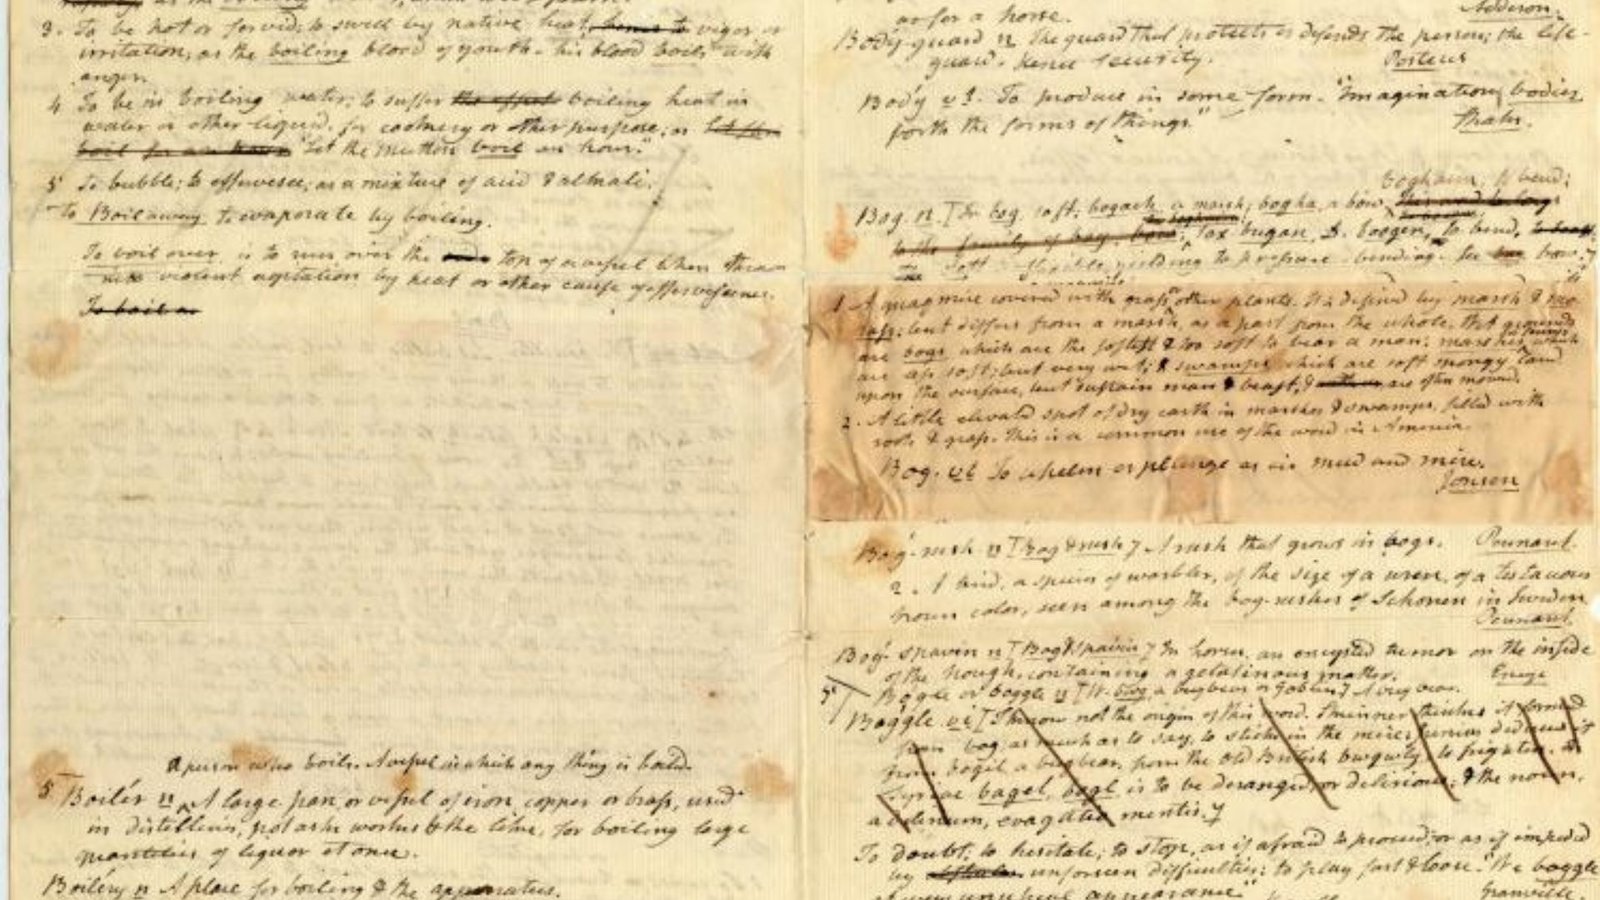 3. To be hot or fervid; to swell by native heat, vigor or
irritation; as the boiling blood of youth - his blood boils with
anger.
4 To be in boiling water; to suffer boiling heat in
water or other liquid, for cookery or other purpose; as
"Let the mutton boil an hour."
5 To bubble; to effervesce; as a mixture of acid & alkali.
To Boil away, to evaporate by boiling.
To boil over, is to run over the top of a vessel when thrown
into violent agitation by heat or other cause of effervescence.
To boil
A person who boils. A vessel in which any thing is boiled.
5 Boiler n A large pan, or vessel of iron, copper or brass, used
in distilleries, potash works & the like, for boiling large
quantities of liquor at once.
Boilery n A place for boiling & the apparatus.
as for a horse.
Addison.
Body-guard n The guard that protects or defends the person; the life-
guard. Hence security.
Porteus
Body v.t. To produce in some form. "Imagination bodies
forth the forms of things."
Shaks.
boghaim, to bend;
Bog n. [Ir bog, soft; bogach, a marsh; bogha, a bow,
to the family of Sax bugan, D. boogen, to bend,
soft yielding to pressure bending. See bow.]
1. A quagmire covered with grass or other plants. It is defined by marsh & mo-
rass, but differs from a marsh, as a part from the whole. Wet grounds
are bogs, which are the softest & too soft to bear a man; marshes which
are less soft, but very wet; & swamps which are soft spongy land
upon the surface, but sustain man & beast, & are often mowed.
2. A little elevated spot of dry earth in marshes & swamps, filled with
roots & grass. This is a common use of the word in America.
Bog. v.t To whelm or plunge as in mud and mire.
Jonson
Bog-rush n [bog & rush] A rush that grows in bogs. Pennant.
2. A bird, a species of warbler, of the size of a wren, of a testaceous
brown color, seen among the bog-rushes of Schonen in Sweden
Pennant.
Bog-spavin n [Bog & spavin] In horses, an encysted tumor on the inside
of the hough, containing a gelatinous matter. Encyc
5 Bogle or boggle n [W. bwg a bugbear or goblin] A bugbear.
Boggle v.i [I know not the origin of this word. Skinner thinks it formed
from bog, as much as to say, to stick in the mire; Junius deduces it
from bogil a bugbear, from the old British to frighten. In
Syriac bagel, bagl is to be deranged, or delirious; & the noun,
delirium, evagatio mentis.]
To doubt; to hesitate; to stop, as if afraid to proceed, or as if impeded
by unforseen difficulties; to play fast & loose. "We boggle
at every unusual appearance."
Granville.